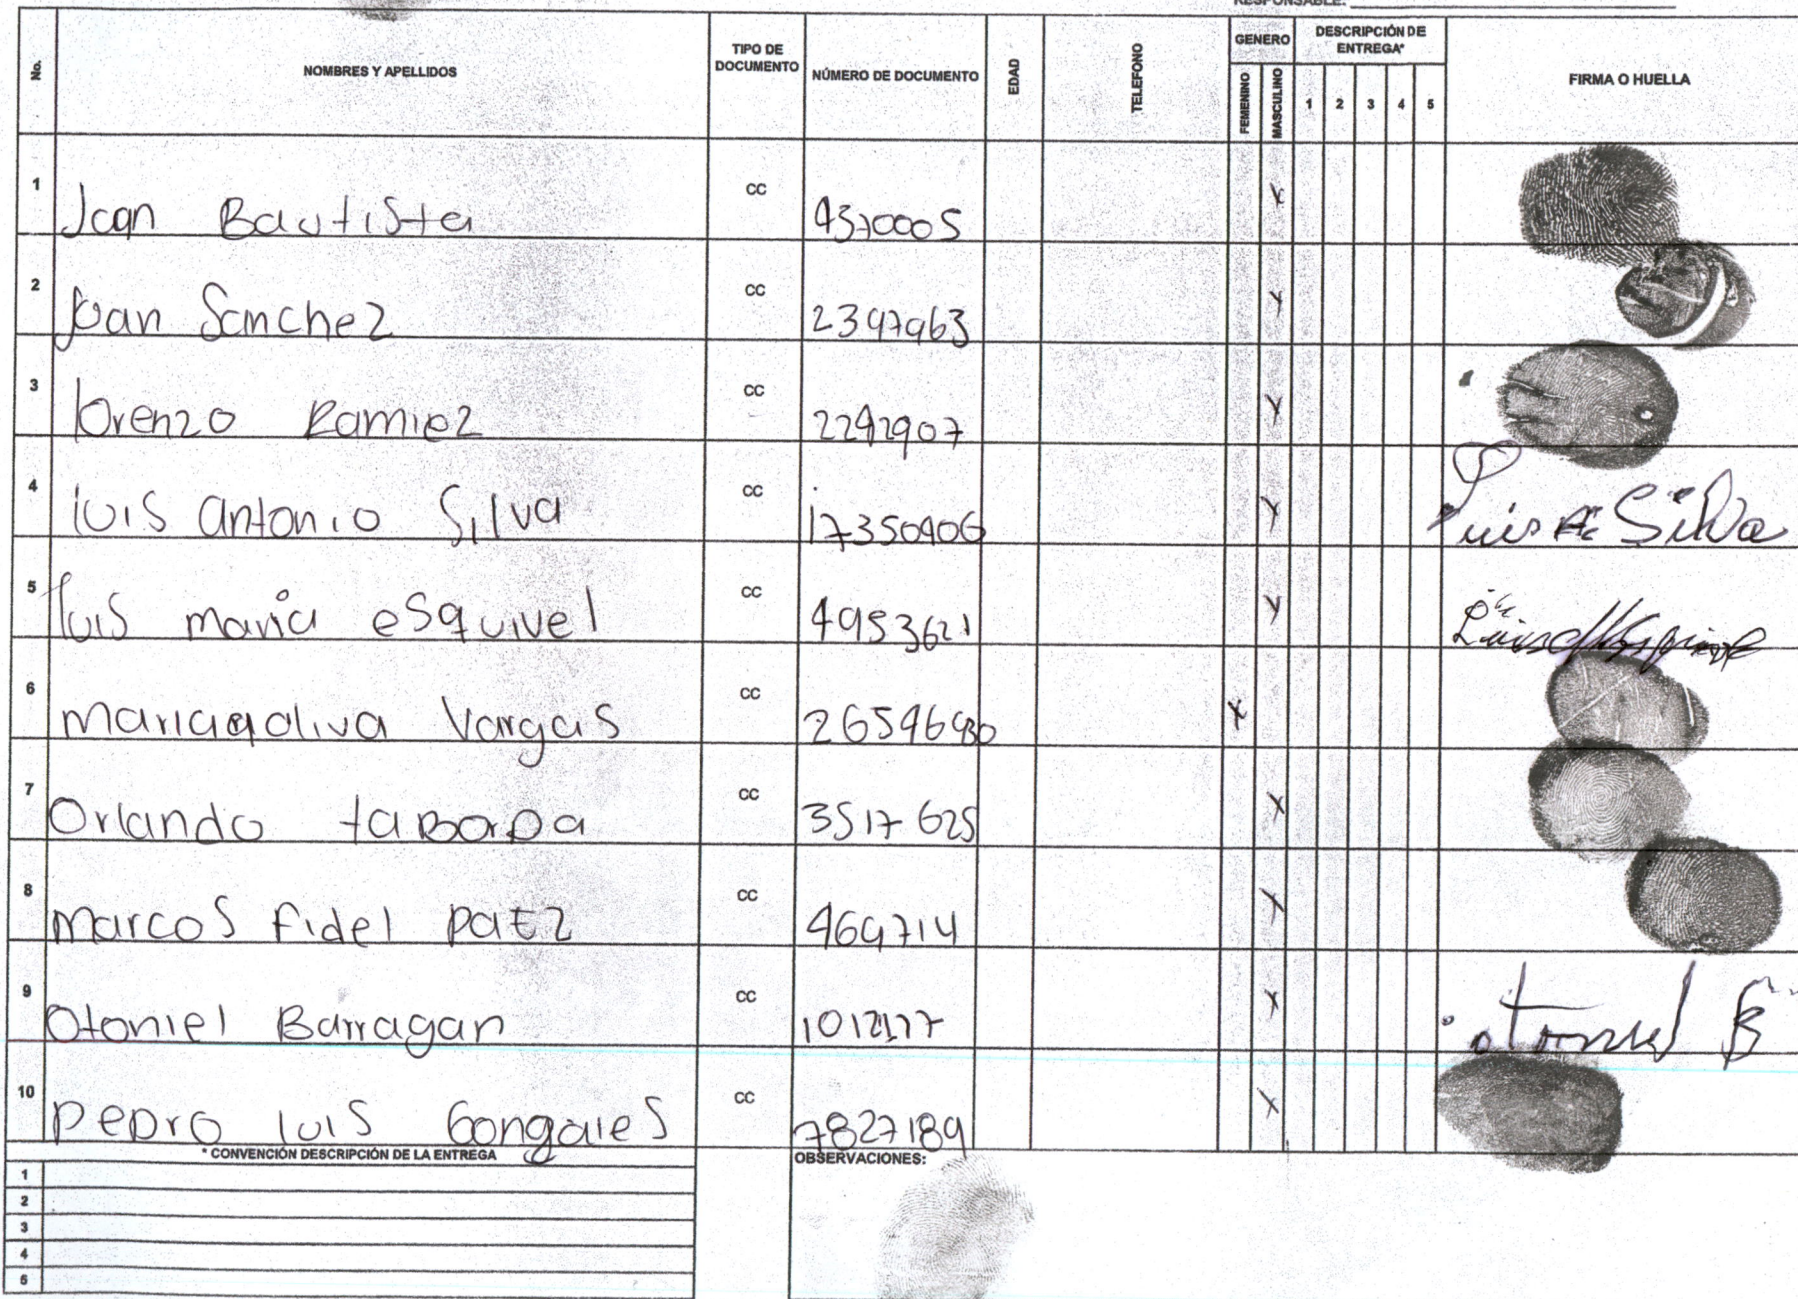 RESPONSABLE:
No. NOMBRES Y APELLIDOS TIPO DE DOCUMENTO NÚMERO DE DOCUMENTO EDAD TELEFONO GENERO FEMENINO MASCULINO DESCRIPCIÓN DE ENTREGA* 1 2 3 4 5 FIRMA O HUELLA
1 Joan Bautista CC 4370005 X
2 Joan Sanchez CC 2397963 X
3 lorenzo Ramiez CC 2292907 X
4 luis antonio Silva CC 17350406 X Luis A. Silva
5 luis maria esquivel CC 4953621 X
6 Vargas CC X
7 Orlando taBorDa CC 3517625 X
8 marcos fidel patz CC 469714 X
9 Otoniel Barragan CC X otoniel B
10 peDro luis Gongales CC 7827189 X
* CONVENCIÓN DESCRIPCIÓN DE LA ENTREGA OBSERVACIONES:
1
2
3
4
5